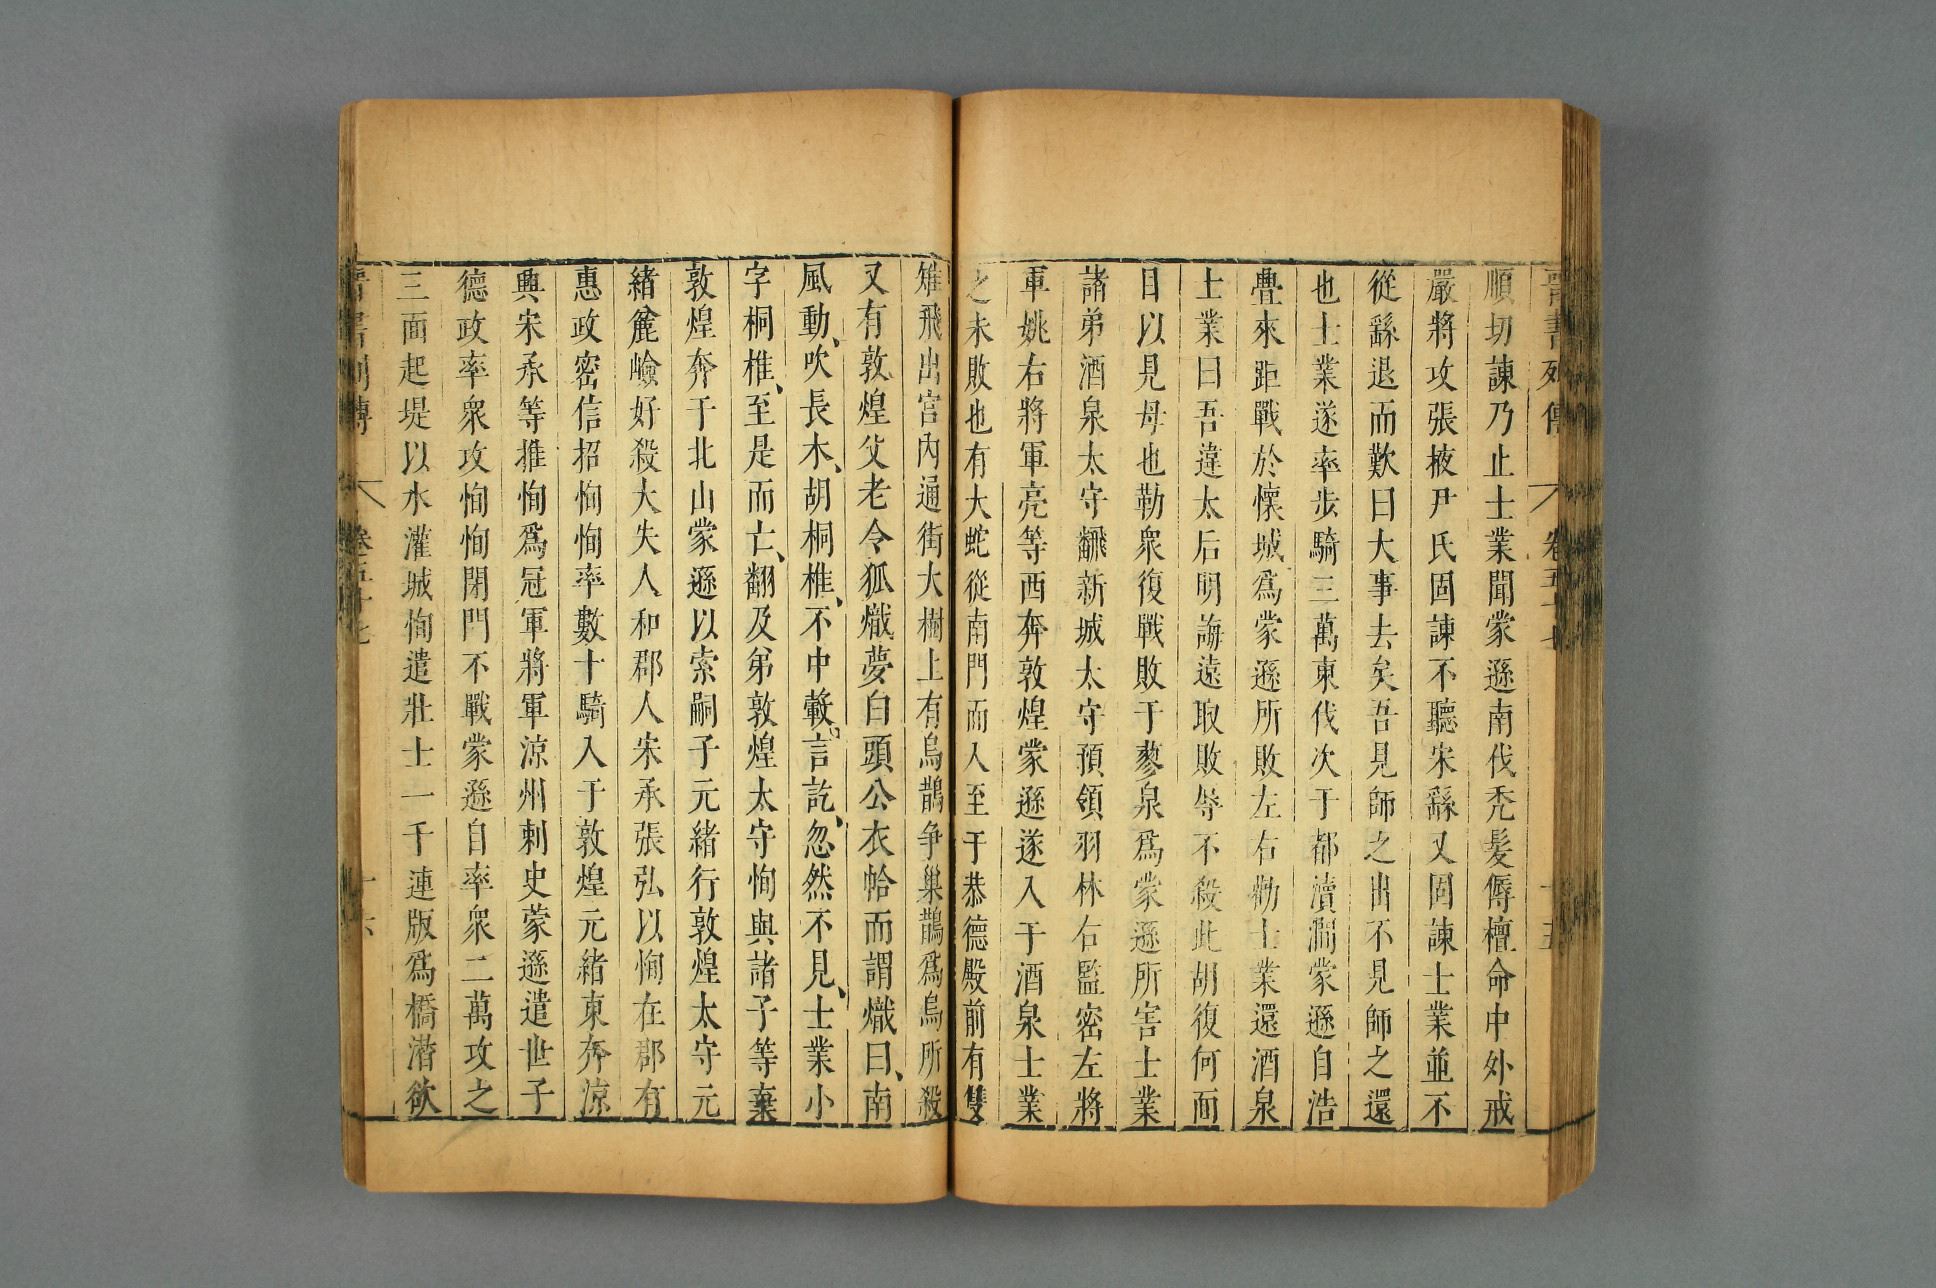 晉書列傳 卷五十七 十五
順切諫乃止士業聞蒙遜南伐禿髮傉檀命中外戒
嚴將攻張掖尹氏固諫不聽宋繇又固諫士業並不
從繇退而歎曰大事去矣吾見師之出不見師之還
也士業遂率步騎三萬東伐次于都瀆澗蒙遜自浩
亹來距戰於懷城爲蒙遜所敗左右勸士業還酒泉
士業曰吾違太后明誨遠取敗辱不殺此胡復何面
目以見母也勒衆復戰敗于蓼泉爲蒙遜所害士業
諸弟酒泉太守飜新城太守預領羽林右監密左將
軍姚右將軍亮等西奔敦煌蒙遜遂入于酒泉士業
之未敗也有大蛇從南門而入至于恭德殿前有雙
雉飛出宮內通街大樹上有烏鵲爭巢鵲爲烏所殺
又有敦煌父老令狐熾夢白頭公衣帢而謂熾曰南
風動吹長木胡桐椎不中轂言訖忽然不見士業小
字桐椎至是而亡翻及弟敦煌太守恂與諸子等棄
敦煌奔于北山蒙遜以索嗣子元緒行敦煌太守元
緒麄嶮好殺大失人和郡人宋承張弘以恂在郡有
惠政密信招恂恂率數十騎入于敦煌元緒東奔凉
興宋承等推恂爲冠軍將軍凉州刺史蒙遜遣世子
德政率衆攻恂恂閉門不戰蒙遜自率衆二萬攻之
三面起堤以水灌城恂遣壯士一千連版爲橋潛欲
晉書列傳 卷五十七 十六